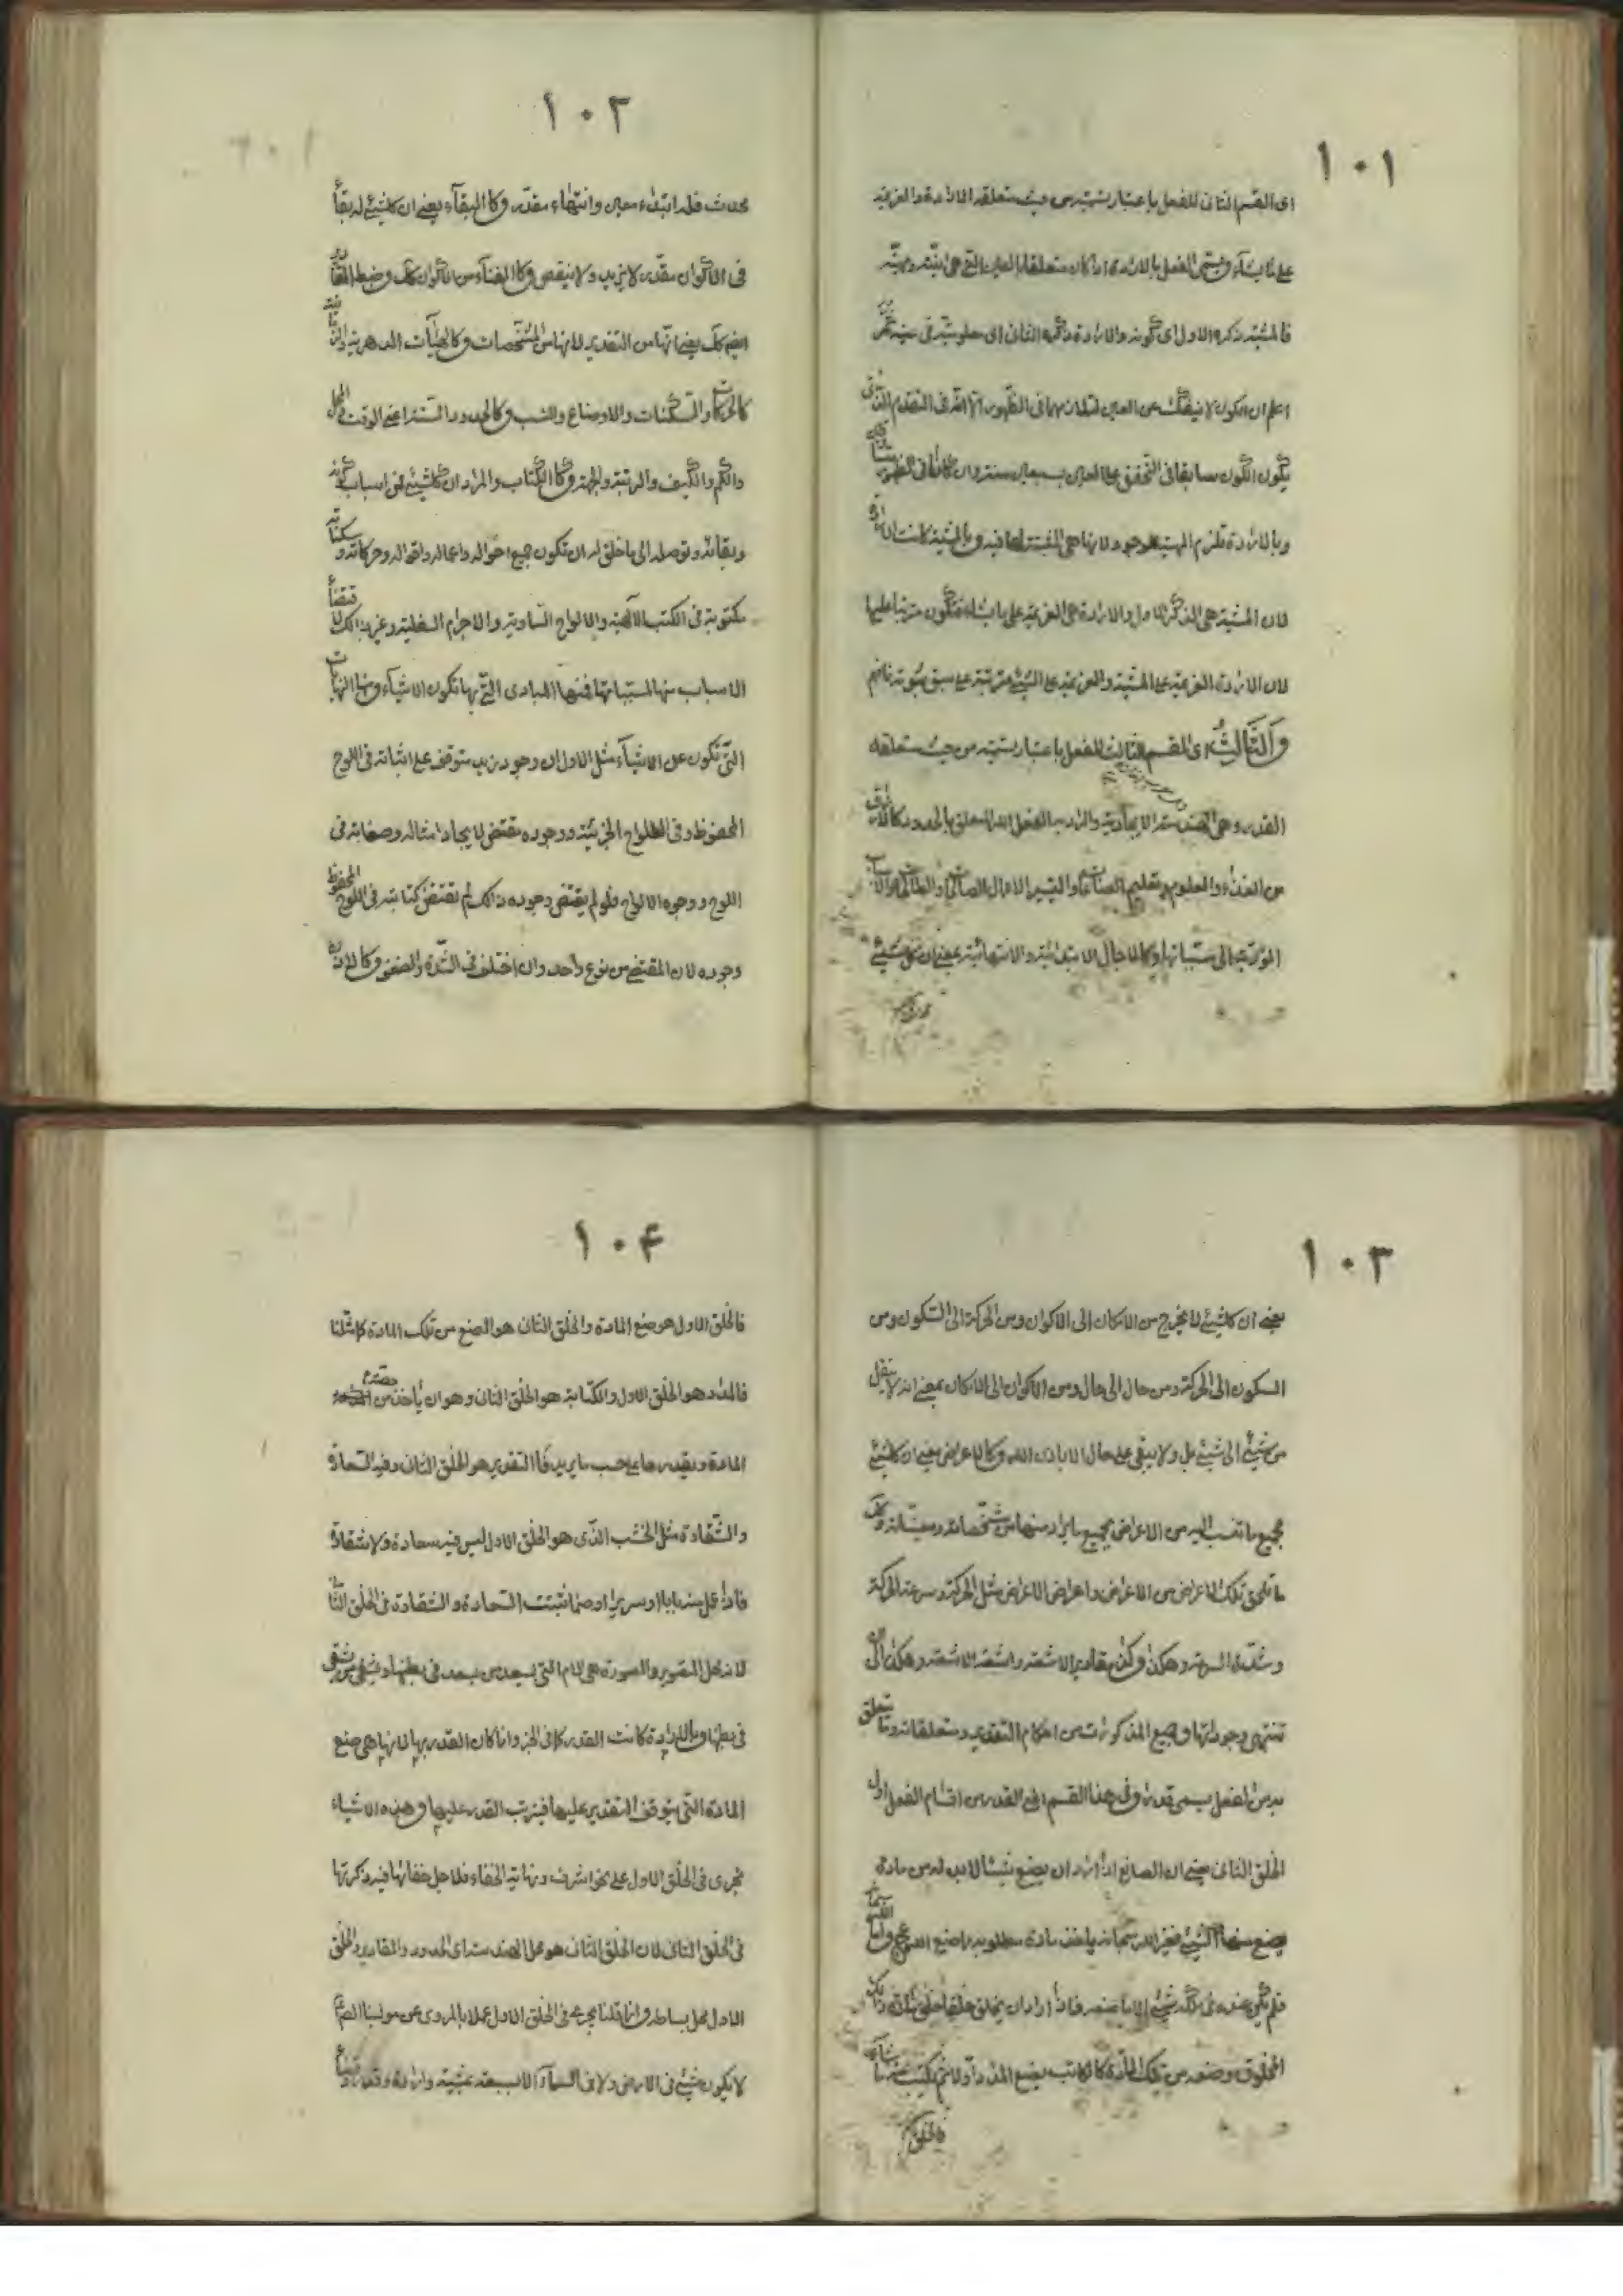 ١٠١
اى القسم الثانى للفعل باعتبار رتبته من حيث متعلقه الارادة والعزيمة
على ما يشاء ويسمى الفعل بالارادة اذا كان متعلقا بالعين التى هى انيته ومهيته
فالمشية ذكره الاول اى كونه والارادة ذكره الثانى اى معلوميته فى عينه ثم
اعلم ان الكون لا ينفك عن العين لتلازمهما فى الظهور الا انه فى التقدم الذاتى
يكون الكون سابقا فى التحقق على العين بسبعين سنة وان كانا فى الظهور
وبالارادة تلزم المهية الوجود لانها هى وبالمشية كانت الارادة
لان المشية هى الذكر الاول والارادة هى العزيمة على ما يشاء فتكون مترتبا عليها
لان الارادة العزيمة على المشية والعزيمة على الشئ مترتبة على سبق ثبوته فافهم
والثالث اى القسم الثالث للفعل باعتبار رتبته من حيث متعلقه
القدر وهى الهندسة الايجادية والمراد به الفعل المتعلق بالحدود كالارزاق
من الغذاء والعلوم وتعليم الصناعات والتيسير لاعمال الصالحات والطالحات والاسباب
المؤدية الى مسبباتها وكالاجال الابتدائية والانتهائية بمعنى ان كل شئ
١٠٢
محدث فله ابتداء معين وانتهاء مقدر وكالبقاء يعنى ان كلشئ له بقاء
فى الاكوان مقدر لا يزيد ولا ينقص وكالفناء من الاكوان كك وضبط المقادير
ايضا كك يعنى انها من التقدير لانها من المشخصات وكالهيئات الدهرية والزمانية
كالحركات والسكنات والاوضاع والنسب وكالحدود الستة اعنى الوقت والمحل
والكم والكيف والرتبة والجهة وكالكتاب والمراد ان كلشئ فمن اسباب كونه
وبقائه وتوصله الى ما خلق له ان تكون جميع احواله واعماله واقواله وحركاته وسكناته
مكتوبة فى الكتب الالهية والالواح السماوية والاجرام السفلية وغير ذلك لاقتضاء
الاسباب منها لمسبباتها فمنها المبادى التى بها تكون الاشياء ومنها النهايات
التى تكون عن الاشياء مثل الاول ان وجود زيد متوقف على اثباته فى اللوح
المحفوظ وفى الالواح الجزئية ووجوده مقتض لايجاد امثاله وصفاته فى
اللوح ووجوه الالواح فلو لم يقتض وجوده ذلك لم تقتض كتابته فى اللوح المحفوظ
وجوده لان المقتضى من نوع واحد وان اختلف فى الشدة والضعف وكالاذن
١٠٣
يعنى ان كلشئ لا يخرج من الامكان الى الاكوان ومن الحركة الى السكون ومن
السكون الى الحركة ومن حال الى حال ومن الاكوان الى الامكان بمعنى انه لا ينتقل
من شئ الى شئ بل ولا يبقى على حال الا باذن الله وكالاعراض يعنى ان كلشئ
بجميع ما تنسب اليه من الاعراض بجميع ما يراد منها من مشخصاته ومعيناته وكك
ما تلحق تلك الاعراض من الاعراض واعراض الاعراض مثل الحركة وسرعة الحركة
وشدة السرعة وهكذا وكذا مقادير الاشعة واشعة الاشعة وهكذا الى ان
تنتهى وجوداتها وجميع المذكورات من احكام التقدير ومتعلقاته وما تتعلق
به من الفعل يسمى قدرا وفى هذا القسم اى القدر من اقسام الفعل اول
الخلق الثانى يعنى ان الصانع اذا اراد ان يصنع شيئا لابد له من مادة
يصنع منها الشئ فغير الله سبحانه ياخذ مادة مطلوبه مما صنع الله عز وجل واما الله سبحانه
فلم يكن عنده فى ملكه شئ الا ما صنعه فاذا اراد ان يخلق خلقا خلق مادة ذلك
المخلوق وصنعه من تلك المادة كالكاتب يصنع المداد اولا ثم يكتب منه ما شاء
فالخلق
١٠۴
فالخلق الاول هو صنع المادة والخلق الثانى هو الصنع من تلك المادة كما مثلنا
فالمداد هو الخلق الاول والكتابة هو الخلق الثانى وهو ان يأخذ حصة من
المادة ويقدرها على حسب ما يريد فالتقدير هو الخلق الثانى وفيه السعادة
والشقاوة مثل الخشب الذى هو الخلق الاول ليس فيه سعادة ولا شقاوة
فاذا عمل منه بابا او سريرا او صنما ثبتت السعادة والشقاوة فى الخلق الثانى
لانه محل التصوير والصورة هى الام التى يسعد من سعد فى بطنها ويشقى من شقى
فى بطنها وبالارادة كانت القدر كما فى الخبر وانما كان القدر بها لانها هى صنع
المادة التى يتوقف التقدير عليها فيترتب القدر عليها وهذه الاشياء
تجرى فى الخلق الاول على نحو اشرف ونهاية الخفاء فلاجل خفائها فيه ذكرتها
فى الخلق الثانى لان الخلق الثانى هو محل الهندسة اى الحدود والمقادير والخلق
الاول محل بساطة وانما قلنا يجرى فى الخلق الاول عملا بالمروى عن مولينا الصادق
لا يكون شئ فى الارض ولا فى السماء الا بسبعة بمشية وارادة وقدر وقضاء